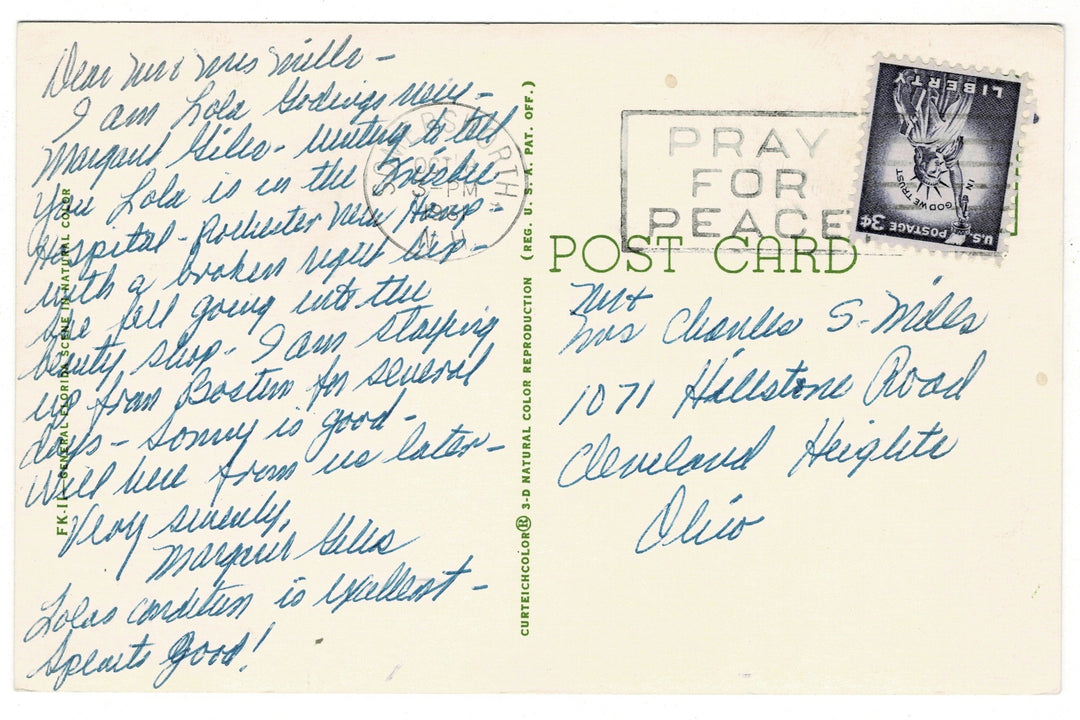 Dear Mr & Mrs Mills -
I am Lola Godings
Margaret Giles - writing to tell
you Lola is in the Frisbee
Hospital - Rochester New Hamp -
with a broken right hip -
she fell going into the
beauty shop - I am staying
up from Boston for several
days - Sonny is good -
Will hear from us later -
Very sincerely,
Margaret Giles
Lolas condition is excellent -
Spirits good!
FK-11—GENERAL FLORIDA SCENE IN NATURAL COLOR
CURTEICHCOLOR® 3-D NATURAL COLOR REPRODUCTION (REG. U. S. A. PAT. OFF.)
OCT
PM
N.H
PRAY
FOR
PEACE
LIBERTY
IN
GOD WE TRUST
U.S. POSTAGE 3¢
POST CARD
Mr &
Mrs Charles S. Mills
1071 Hillstone Road
Cleveland Heights
Ohio